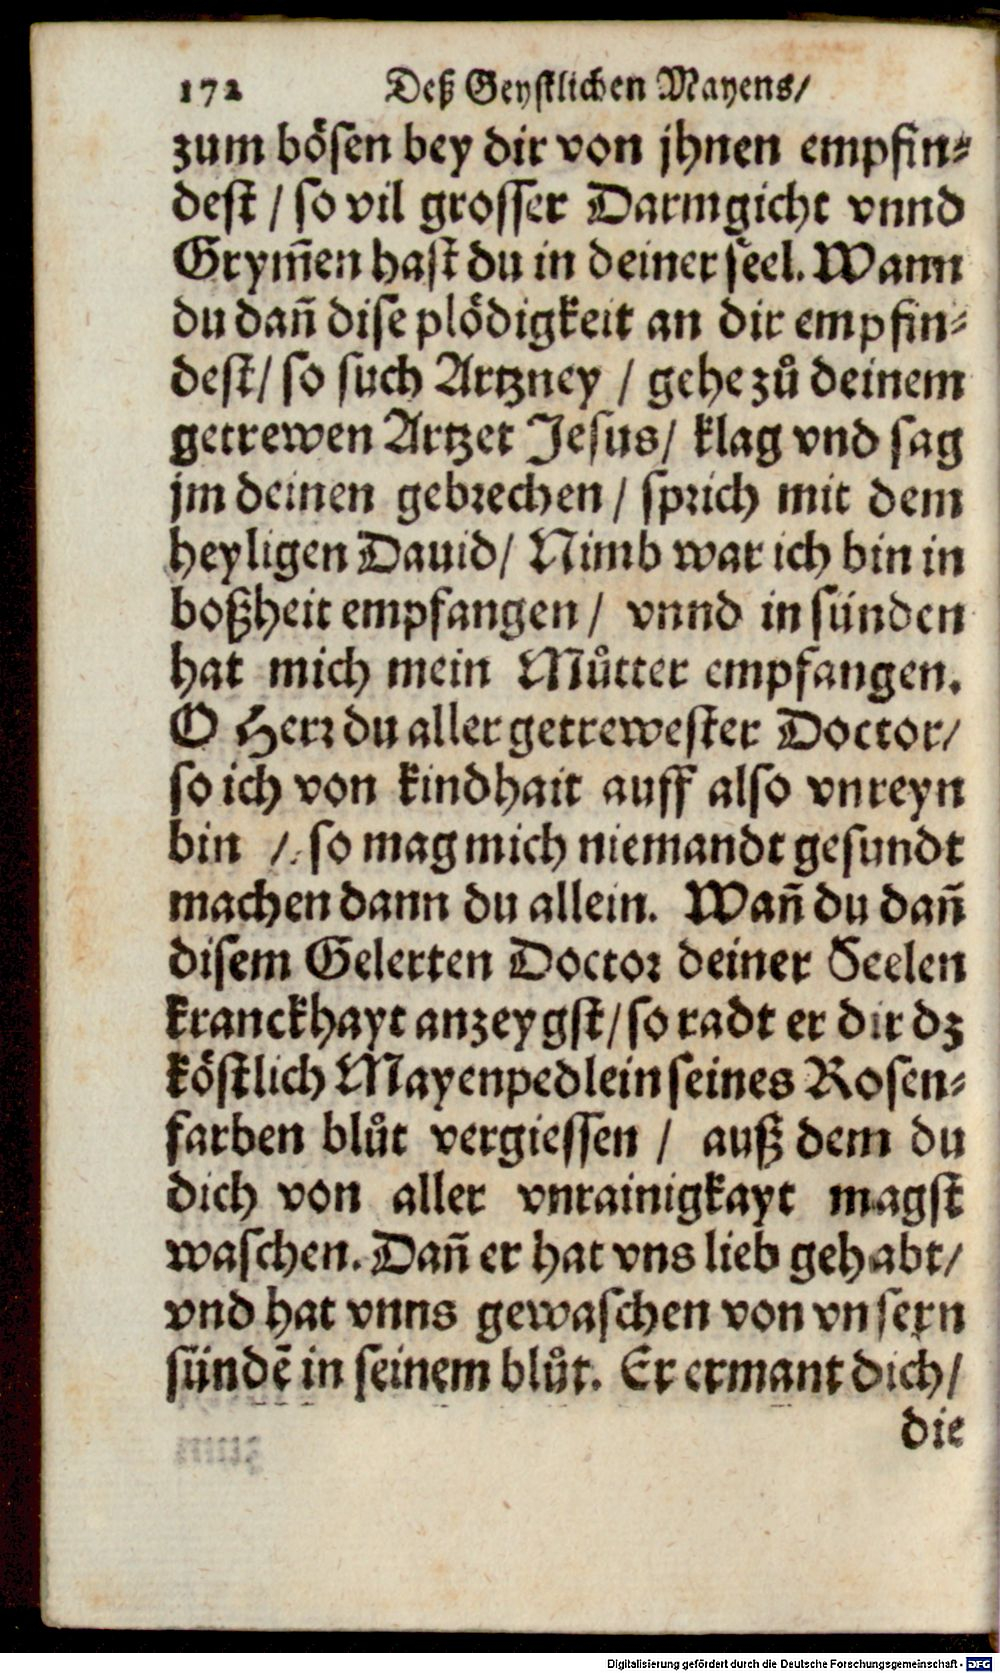 172 Deß Geystlichen Mayens/
zum bösen bey dir von jhnen empfin⸗
dest / so vil grosser Darmgicht vnnd
Grym̃en hast du in deiner seel. Wann
du dañ dise plödigkeit an dir empfin⸗
dest/ so such Artzney / gehe zů deinem
getrewen Artzet Jesus/ klag vnd sag
jm deinen gebrechen / sprich mit dem
heyligen Dauid/ Nimb war ich bin in
boßheit empfangen / vnnd in sünden
hat mich mein Můtter empfangen.
O Herr du aller getrewester Doctor/
so ich von kindhait auff also vnreyn
bin /. so mag mich niemandt gesundt
machen dann du allein. Wañ du dañ
disem Gelerten Doctor deiner Seelen
kranckhayt anzeygst/ so radt er dir dz
köstlich Mayenpedlein seines Rosen⸗
farben blůt vergiessen / auß dem du
dich von aller vnrainigkayt magst
waschen. Dañ er hat vns lieb gehabt/
vnd hat vnns gewaschen von vnsern
sündẽ in seinem blůt. Er ermant dich/
die
Digitalisierung gefördert durch die Deutsche Forschungsgemeinschaft - DFG